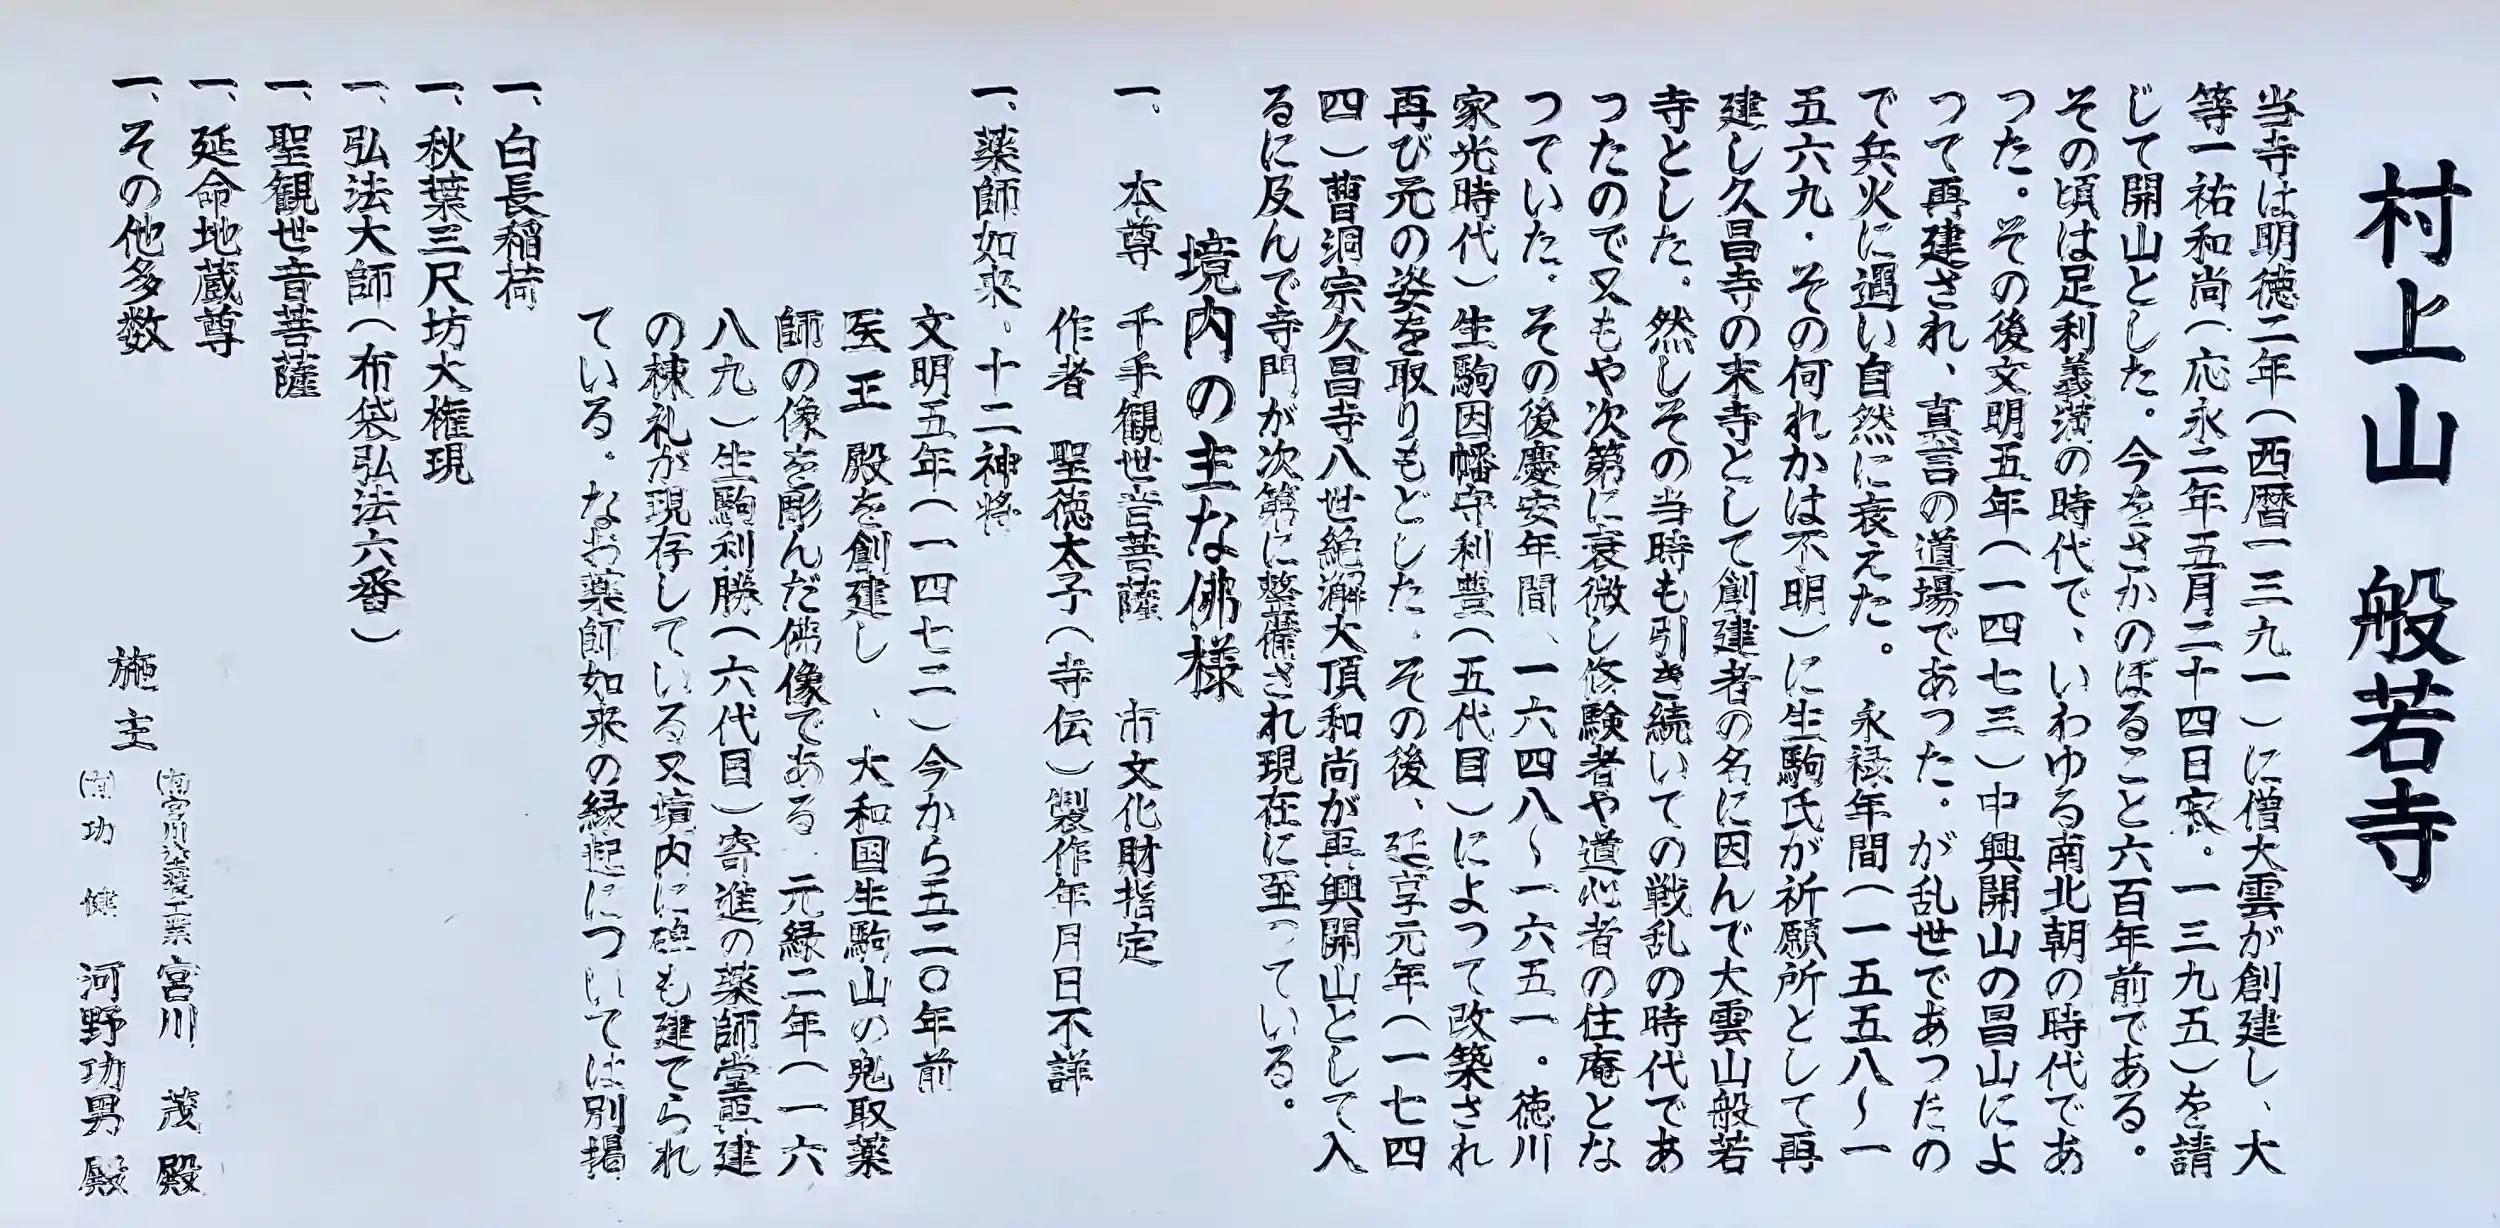 村上山 般若寺
当寺は明徳二年(西暦一三九一)に僧大雲が創建し、大
等一祐和尚(応永二年五月二十四日寂。一三九五)を請
じて開山とした。今をさかのぼること六百年前である。
その頃は足利義満の時代で、いわゆる南北朝の時代であ
った。その後文明五年(一四七三)中興開山の昌山によ
って再建され、真言の道場であった。が乱世であったの
で兵火に遇い自然に衰えた。 永禄年間(一五五八〜一
五六九・その何れかは不明)に生駒氏が祈願所として再
建し久昌寺の末寺として創建者の名に因んで大雲山般若
寺とした。然しその当時も引き続いての戦乱の時代であ
ったので又もや次第に衰微し修験者や道心者の住庵とな
っていた。その後慶安年間、一六四八〜一六五一。徳川
家光時代)生駒因幡守利豊(五代目)によって改築され
再び元の姿を取りもどした。その後、延享元年(一七四
四)曹洞宗久昌寺八世絶澥大頂和尚が再興開山として入
るに及んで寺門が次第に整備され現在に至っている。
境内の主な佛様
一、 本尊 千手観世音菩薩 市文化財指定
作者 聖徳太子(寺伝)製作年月日不詳
一、薬師如来・十二神将
文明五年(一四七二)今から五二〇年前
医王殿を創建し、大和国生駒山の鬼取薬
師の像を彫んだ佛像である。元緑二年(一六
八九)生駒利勝(六代目)寄進の薬師堂再建
の棟札が現存している又境内に碑も建てられ
ている。なお薬師如来の縁起については別掲
一、白長稲荷
一、秋葉三尺坊大権現
一、弘法大師(布袋弘法六番)
一、聖観世音菩薩
一、延命地蔵尊
一、その他多数
施主
㈲宮川塗装工業 宮川 茂殿
㈲功健 河野功男殿